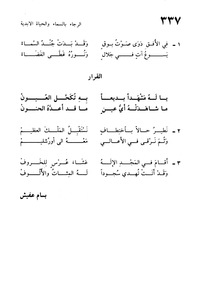 ٣٣٧ الرجاء بالسماء والحياة الابدية
١ - في الأفق دوى صوت بوق وقد بدت جند السماء
يسوع آت في جلال ونوره غطى الفضاء
القرار
يا له مشهداً بديعاً به تكتحل العيون
ما شاهدته أي عين ما قد أعده الحنون
٢ - نطير حالاً باختطاف نستقبل الملك العظيم
وثم نرقى في الأعالي معه الى أورشليم
٣ - أقام في المجد الإله عشاء عرس للخروف
وقد أتت تهدي سجوداً له المئات والألوف
بسام عفيش